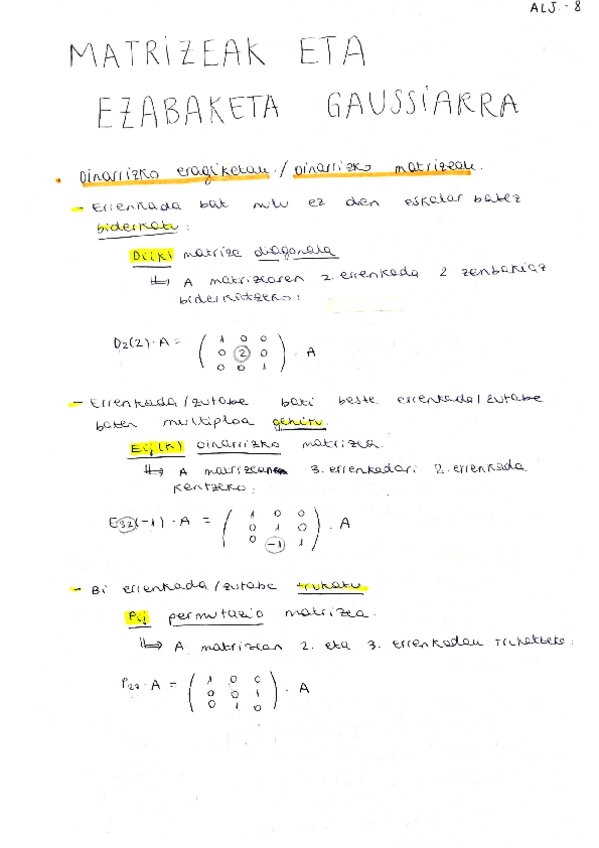 ALJ - 8
MATRIZEAK ETA
EZABAKETA GAUSSIARRA
• Oinarrizko eragiketak / oinarrizko matrizeak.
- Errenkada bat nulu ez den eskalar batez
biderkatu :
Di(k) matrize diagonala
↳ A matrizearen 2. errenkada 2 zenbakiaz
biderkatzeko :
D2(2) · A = ( 1 0 0
0 2 0
0 0 1 ) · A
- Errenkada / zutabe bati beste errenkada / zutabe
baten multiploa gehitu.
Eij(k) oinarrizko matrizea.
↳ A matrizearen 3. errenkadari 2. errenkada
kentzeko :
E32(-1) · A = ( 1 0 0
0 1 0
0 -1 1 ) · A
- Bi errenkada / zutabe trukatu
Pij permutazio matrizea.
↳ A matrizean 2. eta 3. errenkadak trukatzeko :
P23 · A = ( 1 0 0
0 0 1
0 1 0 ) · A